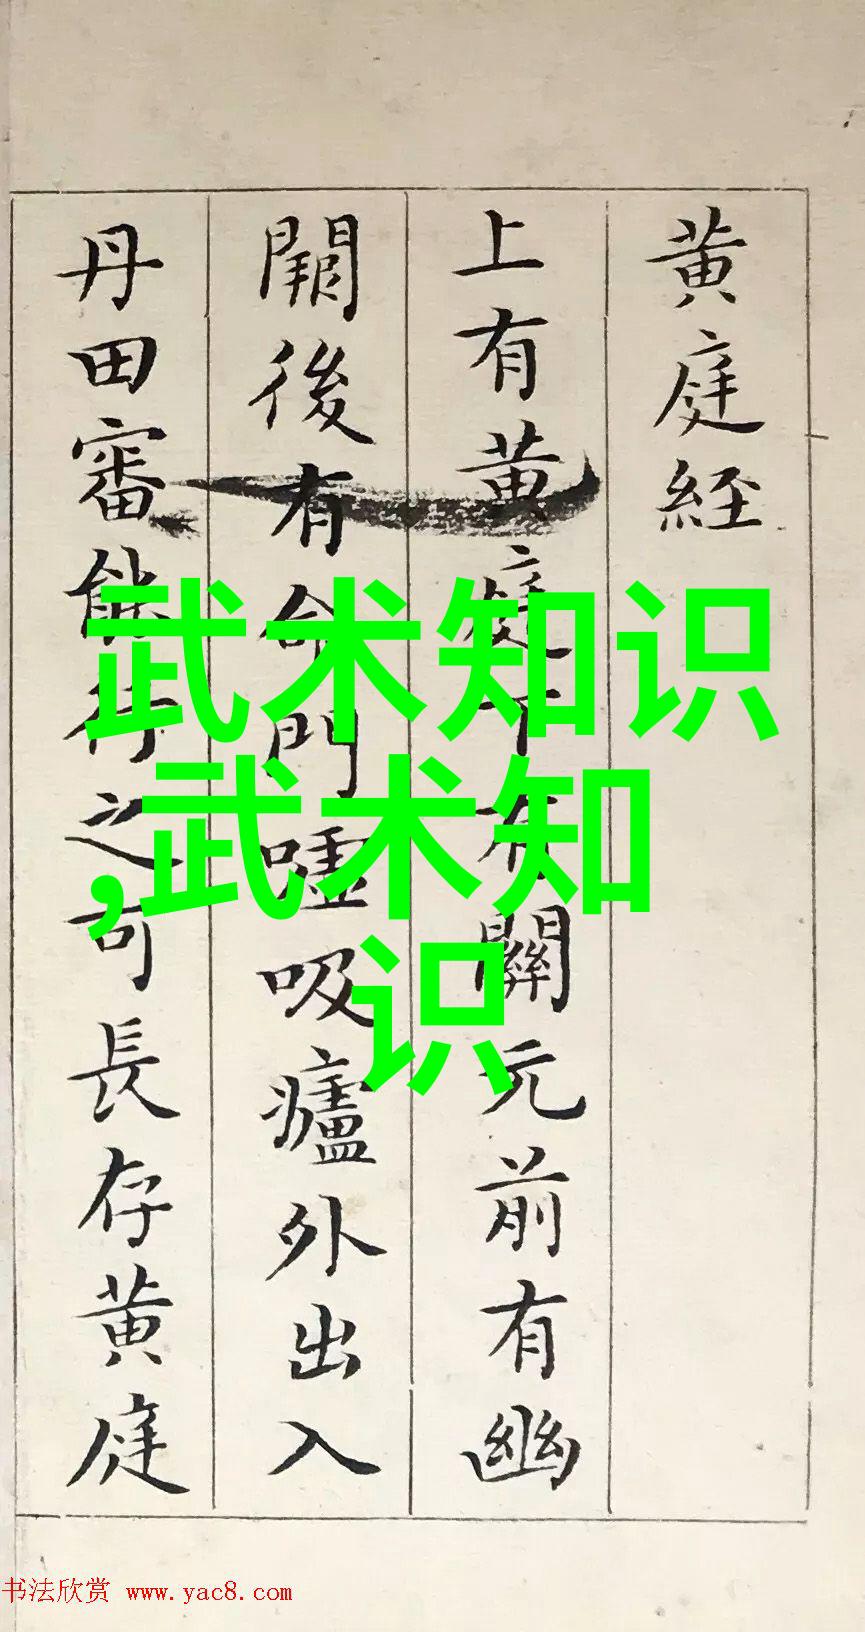 黄庭経
上有黄庭下有關元前有幽
闕後有命門嘘吸廬外出入
丹田審能行之可長存黄庭
武术知识
,武术知
识
书法欣赏 www.yac8.com